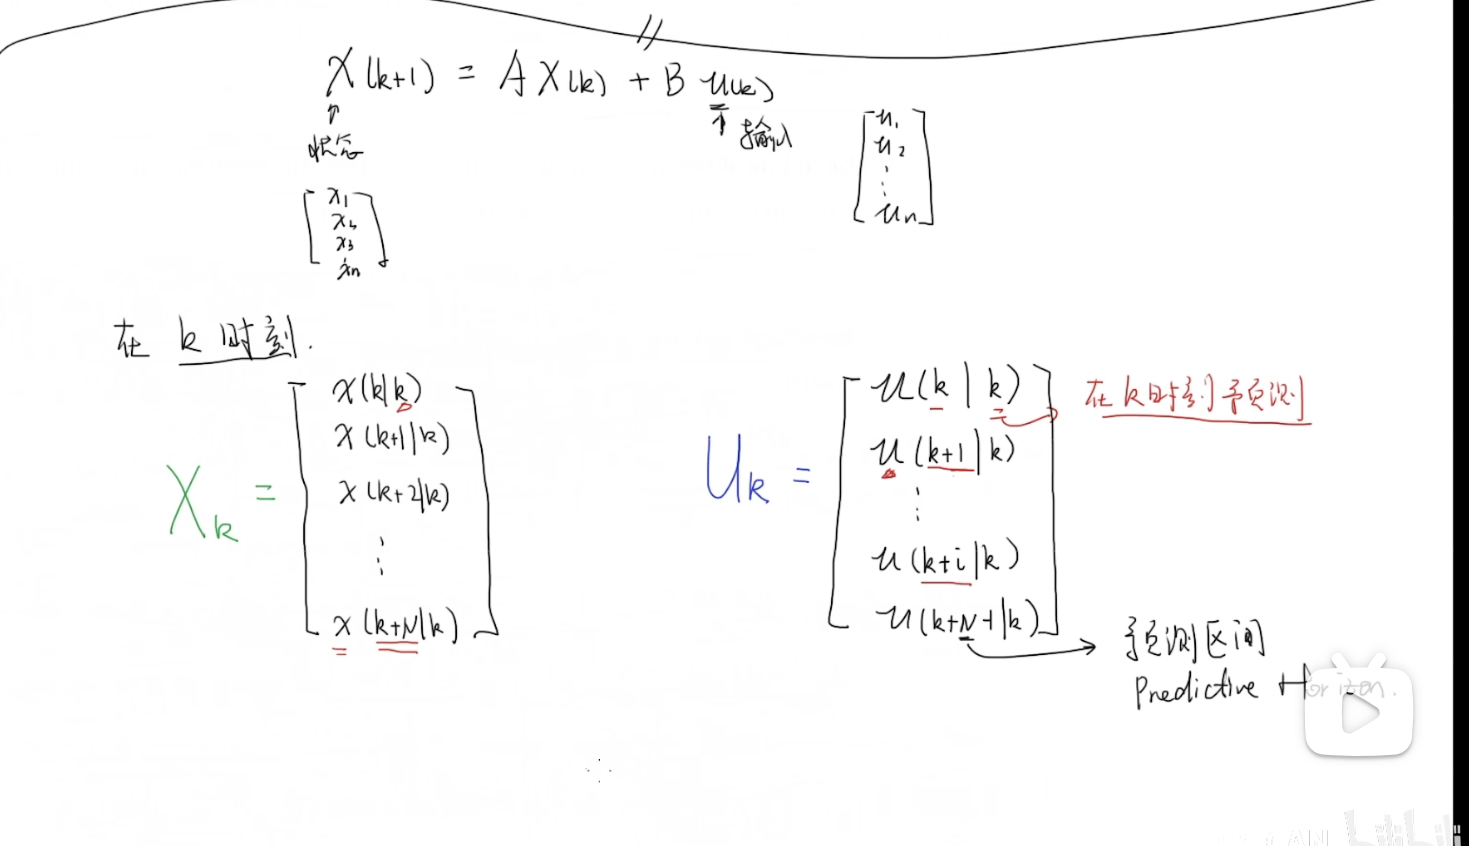 X(k+1) = A X(k) + B u(k)
状态
输入
x₁
x₂
x₃
xₙ
u₁
u₂
⋮
uₙ
在 k 时刻.
X_k =
x(k|k)
x(k+1|k)
x(k+2|k)
⋮
x(k+N|k)
U_k =
u(k|k)
u(k+1|k)
⋮
u(k+i|k)
u(k+N-1|k)
在k时刻预测
预测区间
Predictive Horizon.